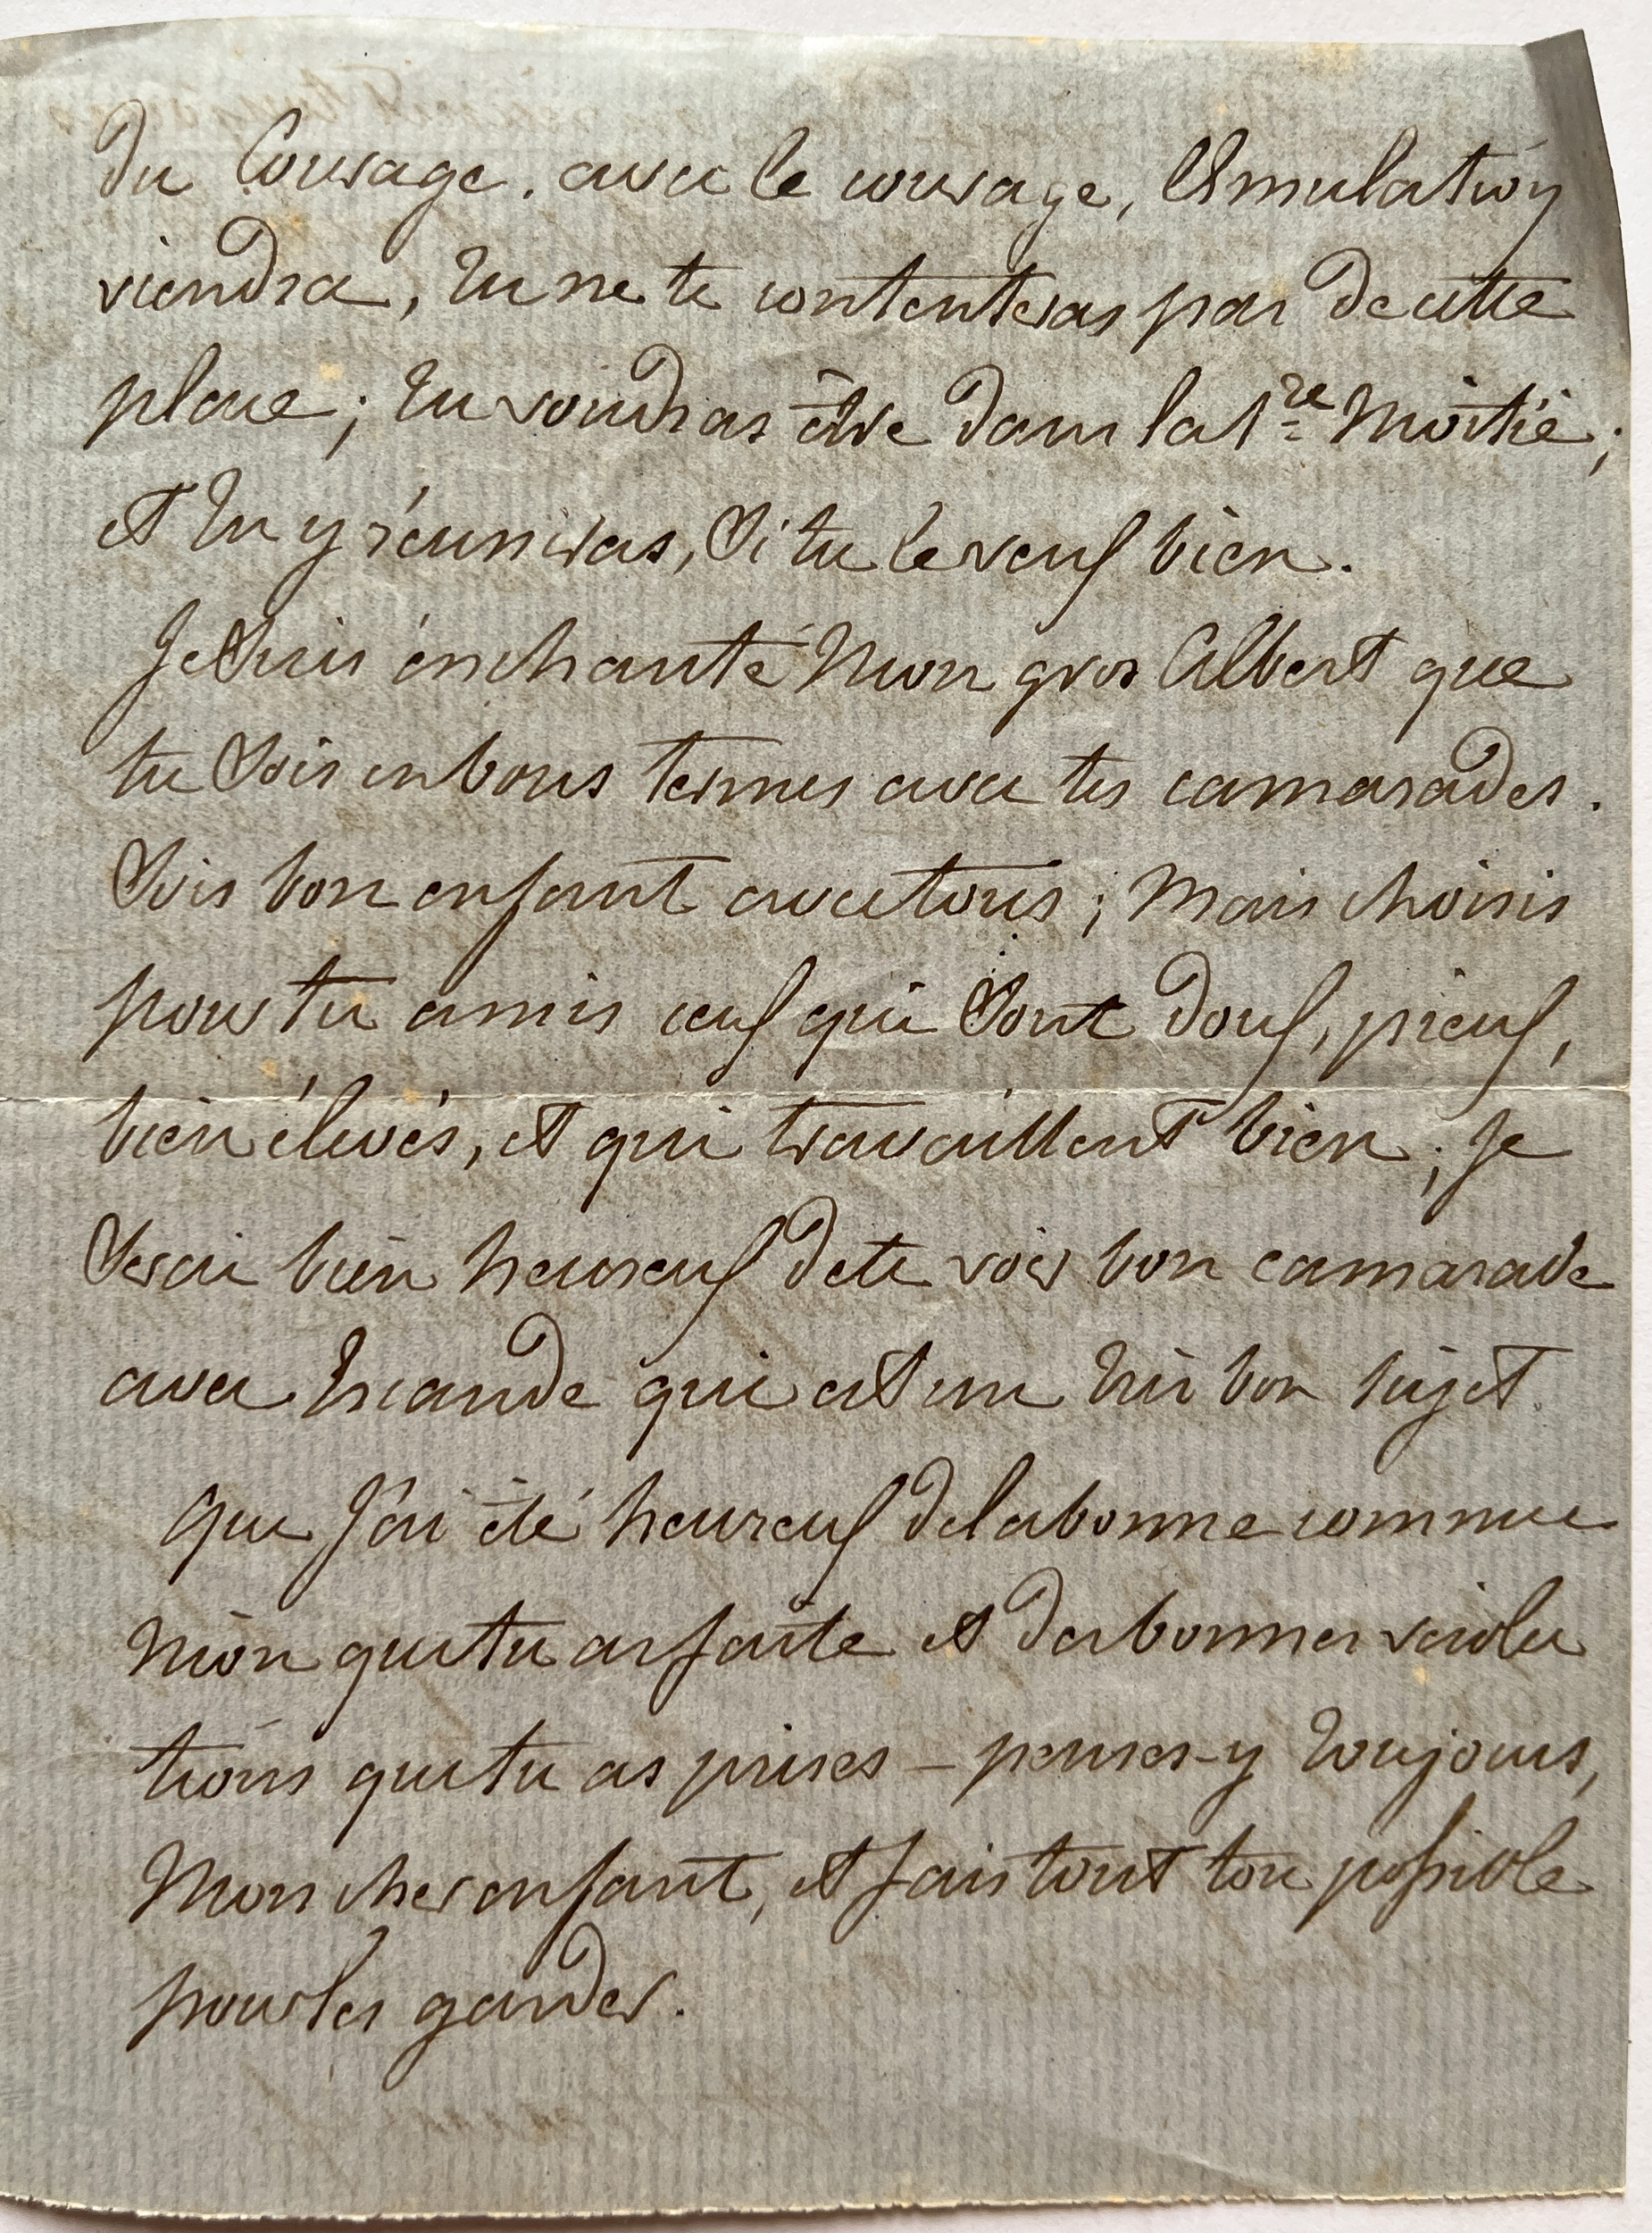 du Courage. avec le courage, l'Emulation
viendra, tu ne te contenteras pas de cette
place; tu voudras être dans la 1re Moitié;
et tu y réuniras, Si tu le veux bien.
Je Suis énchanté Mon gros Albert que
tu Sois en bons termes avec tes camarades.
Sois bon enfant avec tous; Mais choisis
pour tes amis ceux qui Sont doux, pieux,
bien élevés, et qui travaillent bien; Je
Serai bien heureux de te voir bon camarade
avec qui est un très bon sujet.
Que J'ai été heureux de la bonne commu
nion que tu as faite et des bonnes résolu
tions que tu as prises – penses-y toujours,
Mon cher enfant, et fais tout ton possible
pour les garder.